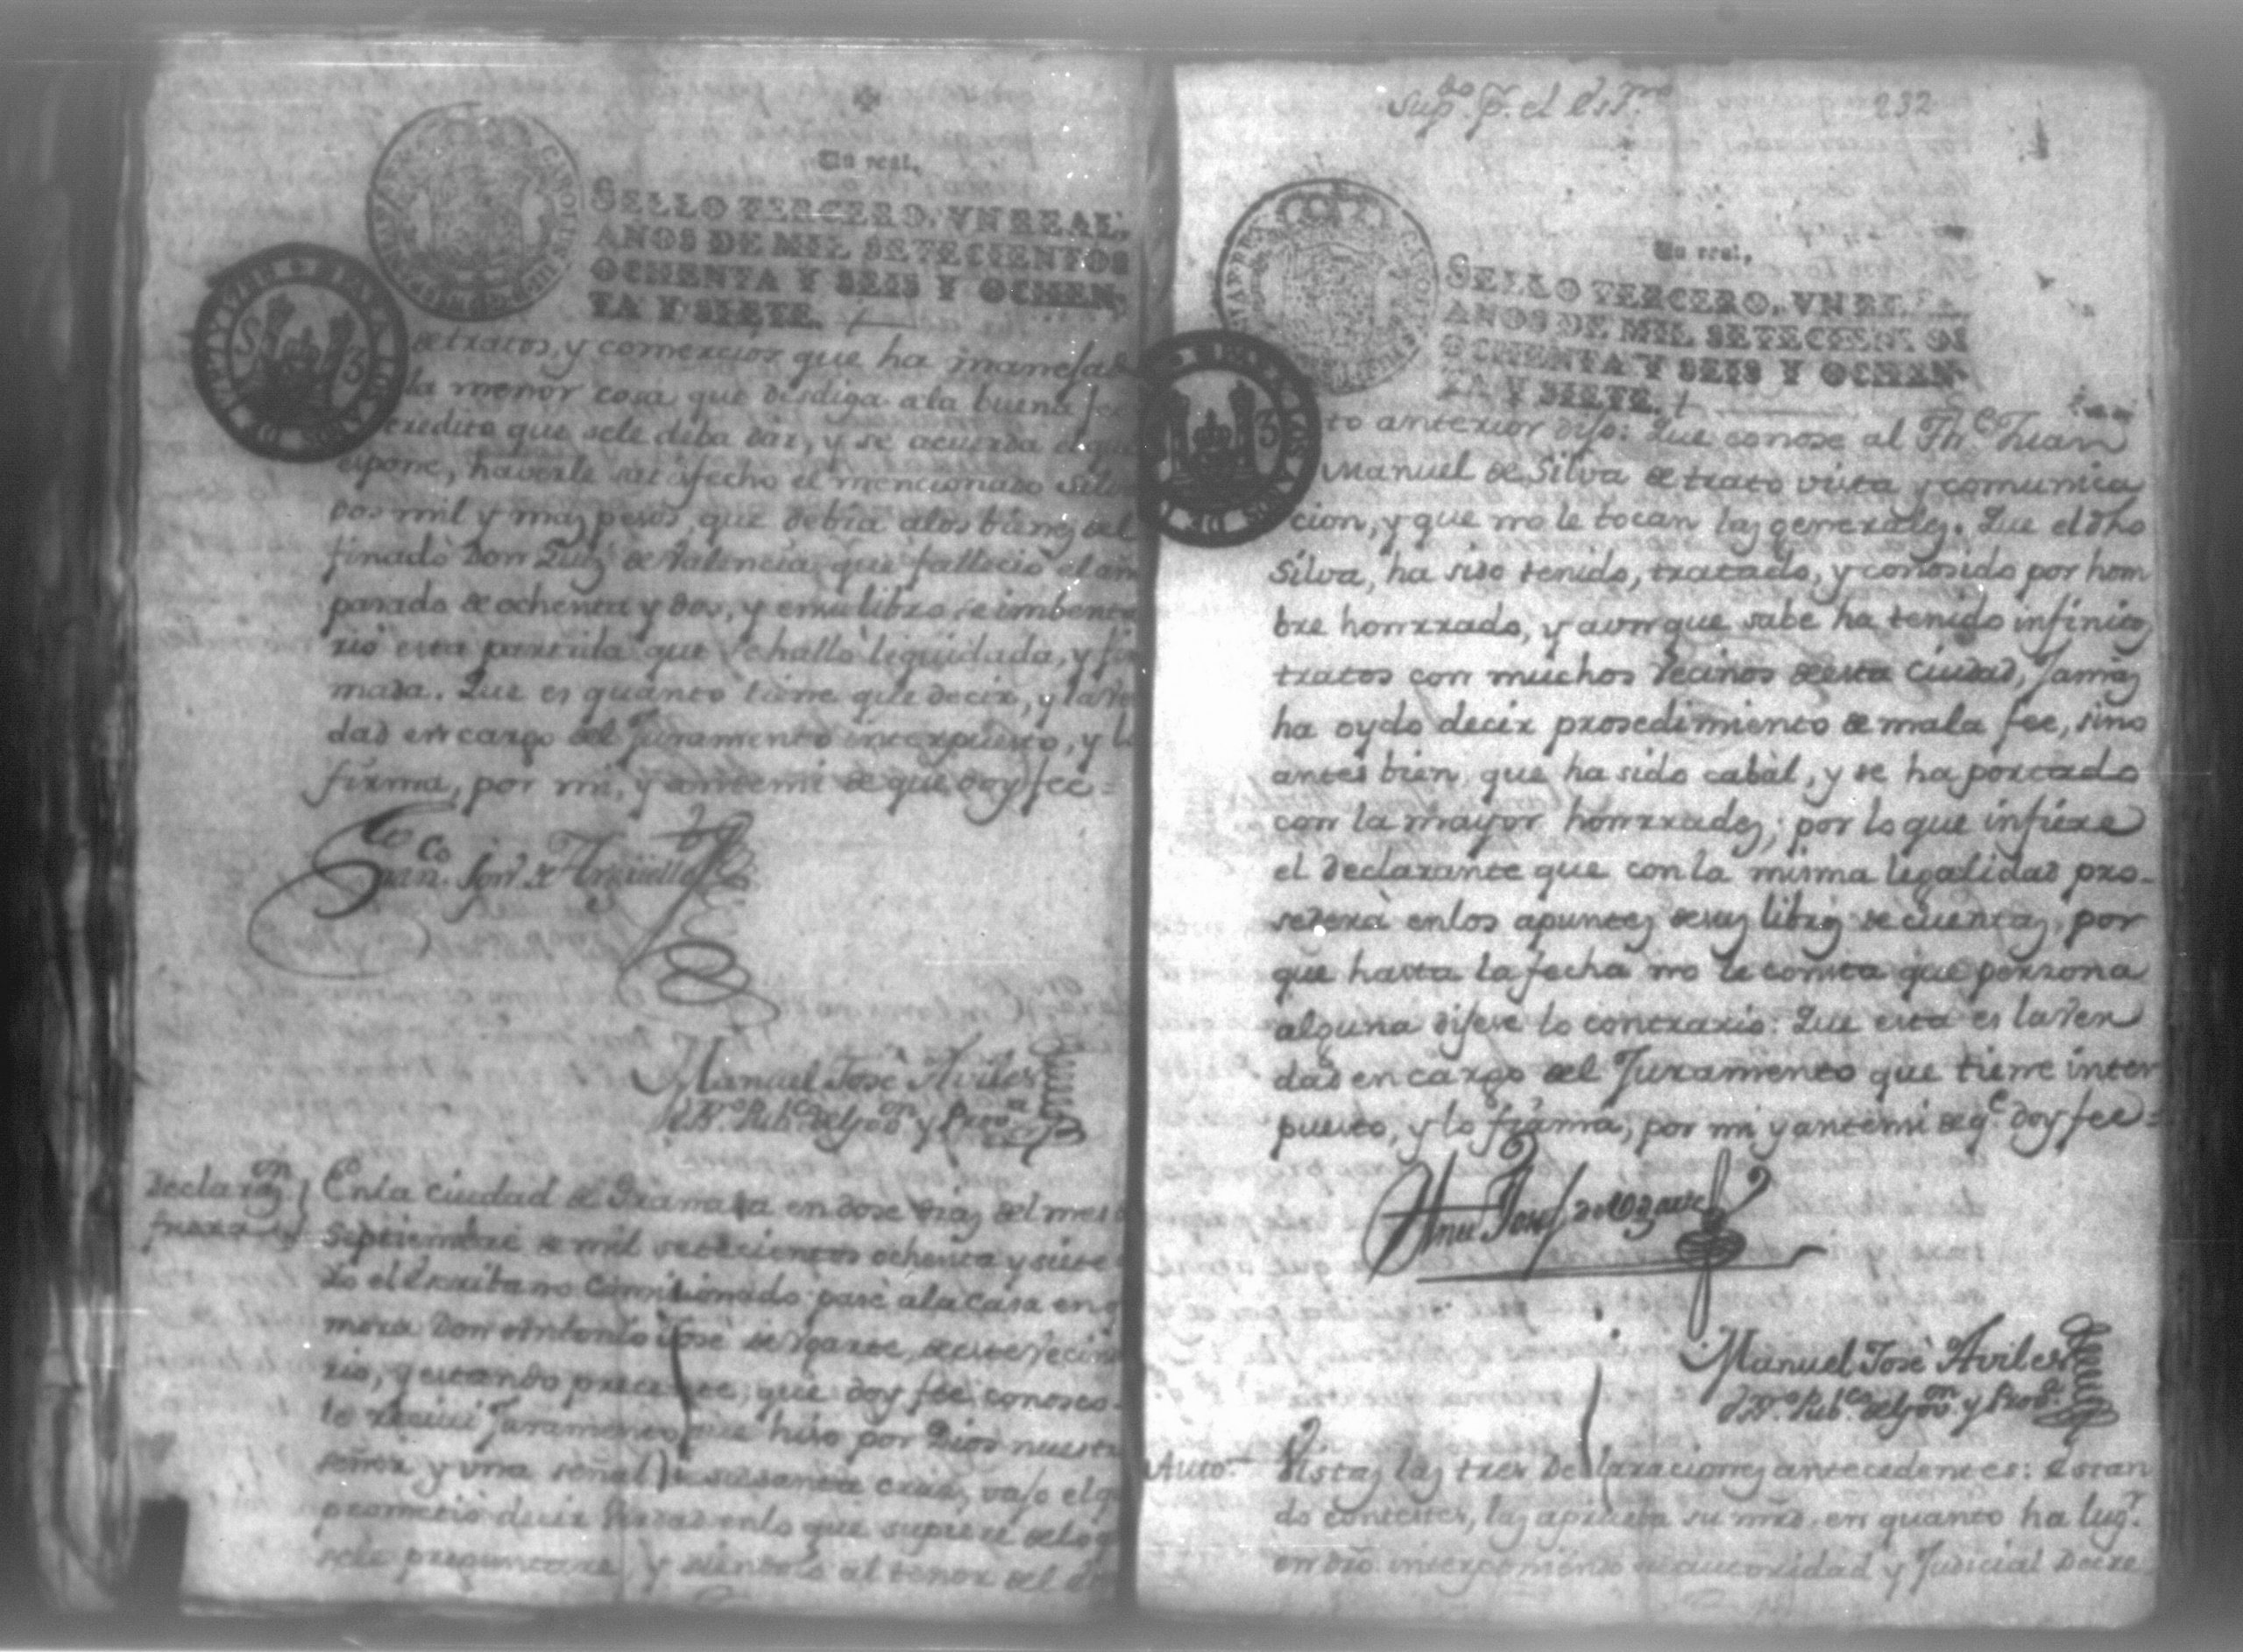 Un real.
SELLO TERCERO, VN REAL,
AÑOS DE MIL SETECIENTOS
OCHENTA Y SEIS Y OCHEN-
TA Y SIETE.
de tratos, y comercios que ha manefa
la menor cosa que desdiga a la buena fee
credito que sele deba dar, y se acuerda el que
espone, haverle satisfecho el mencionado Silva
dos mil y mas pesos, que debia a los bienes del
finado Don Luis de Valencia, que fallecio el año
pasado de ochenta y dos, y en su libro se imbenta
rio esta partida que se halló liquidada, y fir
mada. Que es quanto tiene que decir, y la ver
dad en cargo del Juramento interpuesto, y lo
firma, por mi, y antemi de que doy fee=
Manuel Josè Aviles
Pubᶜᵒ de Govᵒⁿ y
Declaraᵒⁿ
En la ciudad de Granada en dose dias del mes
septiembre de mil setecientos ochenta y siete
Yo el Escribano comicionado pasè ala casa en q
mora Don Antonio Josè de Ugarte, de este vecin
rio, y estando precente, que doy fee conosco
le recivi Juramento que hiso por Dios nuestro
señor y una señal de su santa cruz, vajo el q
prometiò decir verdad en lo que supiere de lo q
sele preguntare, y siendolo al tenor del
supᵈᵒ pʳ. el
232
Un real,
SELLO TERCERO, VN RE
AÑOS DE MIL SETECIENTOS
OCHENTA Y SEIS Y OCHEN-
TA Y SIETE.
to anterior dijo: Que conose al Thᵉ Juan
Manuel de Silva de trato vista y comunica
cion, y que no le tocan las generales. Que el dho
Silva, ha sido tenido, tratado, y conosido por hom
bre honrrado, y aunque sabe ha tenido infinitos
tratos con muchos Vecinos de esta ciudad, Jamas
ha oydo decir prosedimiento de mala fee, sino
antes bien que ha sido cabal, y se ha portado
con la mayor honrrades; por lo que infiere
el declarante que con la misma legalidad pro-
sederà en los apuntes de sus libros de cuentas, por
que hasta la fecha no le consta que persona
alguna dijese lo contrario. Que esta es la ver
dad en cargo del Juramento que tiene inter
puesto, y lo firma, por mi y antemi de qᵉ doy fee=
Antᵒ Josef de Ugarte
Manuel Josè Aviles
Pubᶜᵒ de Govᵒⁿ y
Auto
Vistas las tres Declaraciones antecedentes: estan
do contestes, las aprueba su mrd. en quanto ha lugʳ.
en dro interponiendo su autoridad y Judicial Decre